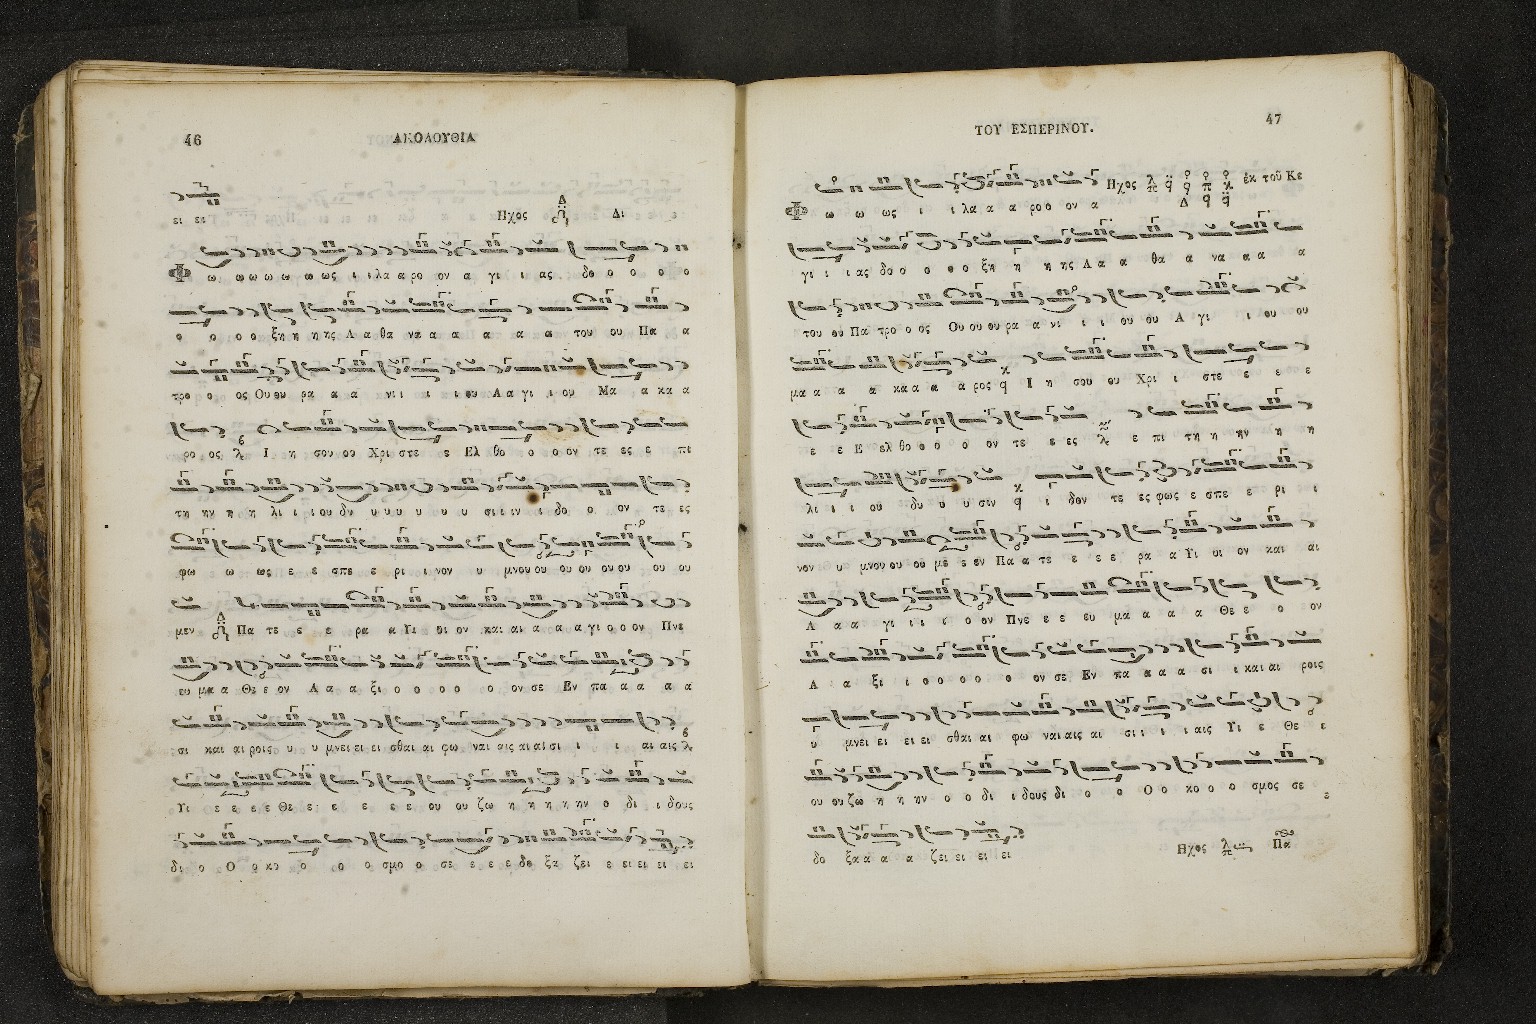 46
ΑΚΟΛΟΥΘΙΑ
ει ει Ηχος Δι
Φ ω ω ω ω ω ω ως ι ι λα α ρο ον α γι ι ι ας δο ο ο ο ο
ο ο ο ο ξη η η ης Α α θα να α α α α α α του ου Πα α
τρο ο ο ος Ου ου ρα α α νι ι ι ι ου Α α γι ι ου Μα α κα α
ρο ος Ι η σου ου Χρι στε ε Ελ θο ο ο ον τε ες ε πι
τη ην η η λι ι ι ου δυ υ υ υ υ υ σι ι ιν ι δο ο ο ον τε ες
φω ω ως ε ε σπε ε ρι ι νον υ μνου ου ου ου ου ου ου ου
μεν Πα τε ε ε ε ρα α Υι υι ον και αι α α α γι ο ο ον Πνε
ευ μα α Θε ε ον Α α α ξι ο ο ο ο ο ον σε Εν πα α α α α
σι και αι ροις υ υ υ μνει ει ει σθαι αι φω ναι αις αι αι σι ι ι αι αις
Υι ε ε ε ε Θε ε ε ε ε ε ε ου ου ζω η η η η ην ο δι ι δους
δι ο Ο ο κο ο ο ο σμο ο σε ε ε ε δο ξα ζει ε ει ει ει ει
ΤΟΥ ΕΣΠΕΡΙΝΟΥ.
47
Ηχος ἐκ τοῦ Κε
Φ ω ω ως ι ι λα α α ρο ο ον α
γι ι ι ας δο ο ο ο ο ξη η η ης Α α α θα α να α α α
του ου Πα τρο ο ος Ου ου ου ρα α νι ι ι ου ου Α γι ι ου ου
μα α α α κα α α α ρος Ι η σου ου Χρι ι στε ε ε ε
ε ε Ε ελ θο ο ο ο ον τε ε ες ε πι τη η ην η η
λι ι ι ου δυ υ υ σιν ι δον τε ες φως ε σπε ε ρι ι
νον υ μνου ου ου με ε εν Πα α τε ε ε ε ρα α Υι υι ον και αι
Α α α γι ι ι ι ο ον Πνε ε ε ευ μα α α α Θε ε ο ον
Α α ξι ι ο ο ο ο ο ον σε Εν πα α α α σι ι και αι ροις
υ μνει ει ει ει σθαι αι φω ναι αις αι σι ι ι ι αις Υι ε Θε ε
ου ου ζω η η ην ο ο δι ι δους δι ο ο Ο ο κο ο ο σμος σε
δο ξα α α α ζει ει ει ει Ηχος Πα